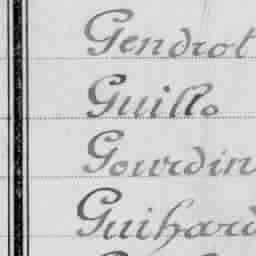 Gendrot
Guillo
Gourdin
Guihard